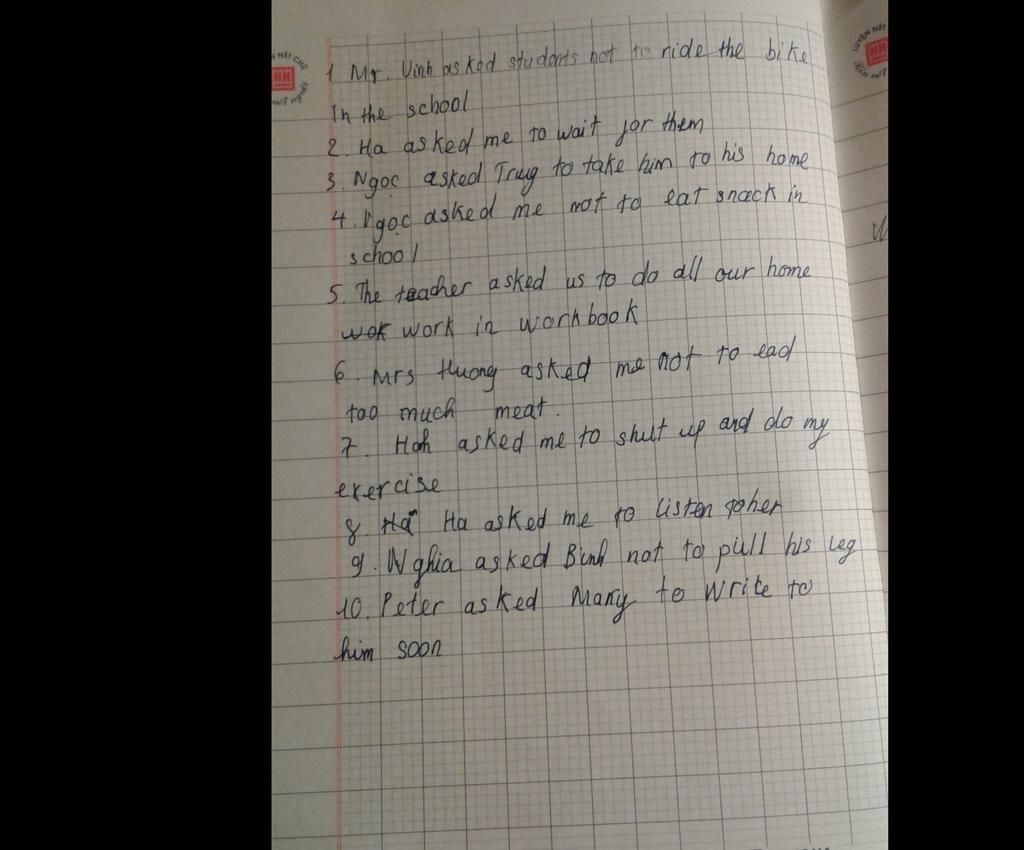 1 Mr. Vinh asked students not to ride the bike
In the school
2. Ha asked me to wait for them
3. Ngọc asked Trug to take him to his home
4. Ngọc asked me not to eat snack in
school
5. The teacher asked us to do all our home
wok work in workbook
6. Mrs Huong asked me not to ead
too much meat.
7. Hoh asked me to shut up and do my
exercise
8. Ha Ha asked me to listen toher
9. Nghia asked Binh not to pull his leg
10. Peter asked Many to write to
him soon
HH
HH